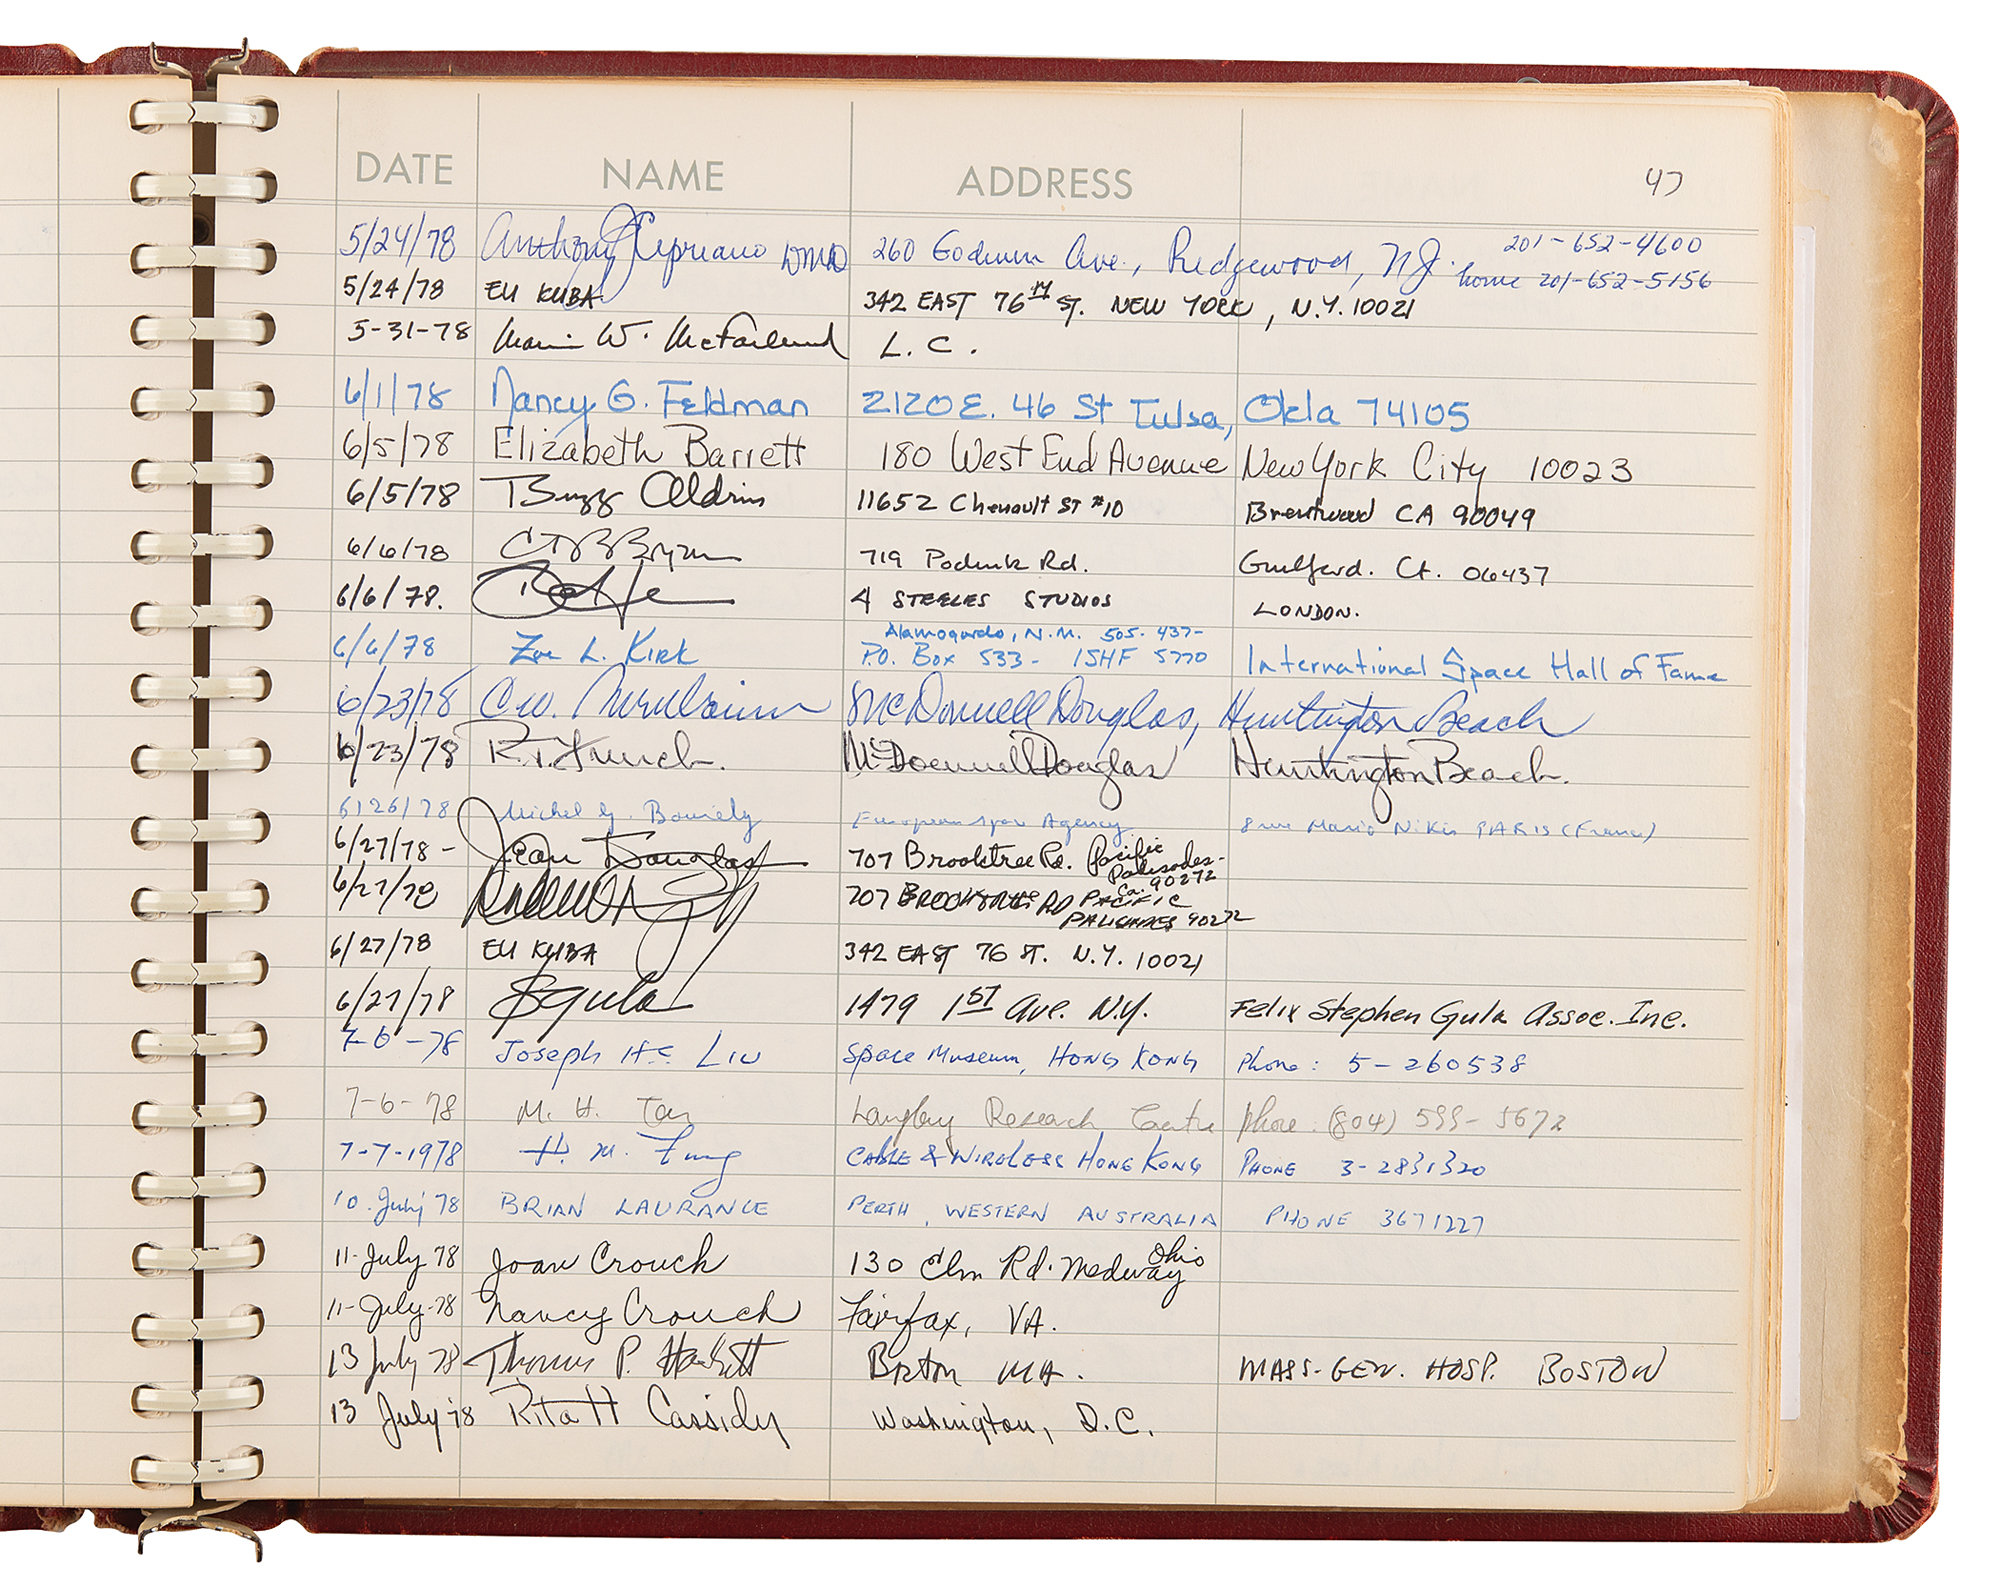 DATE NAME ADDRESS 47
5/24/78 Anthony J Cipriano DMD 260 Godwin Ave., Ridgewood, NJ. 201-652-4600
home 201-652-5156
5/24/78 ELI KUBA 342 EAST 76TH ST. NEW YORK, N.Y. 10021
5-31-78 W. McFarland L.C.
6/1/78 Nancy G. Feldman 2120 E. 46 St Tulsa, Okla 74105
6/5/78 Elizabeth Barrett 180 West End Avenue New York City 10023
6/5/78 Buzz Aldrin 11652 Chenault ST #10 Brentwood CA 90049
6/6/78 719 Podunk Rd. Guilford. Ct. 06437
6/6/78. 4 STEELES STUDIOS LONDON.
Alamogordo, N.M. 505-437-
6/6/78 Zoe L. Kirk P.O. Box 533 - ISHF 5770 International Space Hall of Fame
6/23/78 McDonnell Douglas, Huntington Beach
6/23/78 McDonnell Douglas Huntington Beach.
6/26/78 Michel G. European Agency PARIS (France)
6/27/78 - Jean Douglas 707 Brooktree Rd. Pacific
Palisades-
Ca. 90272
6/27/78 707 BROOKTREE RD PACIFIC
PALISADES 90272
6/27/78 ELI KUBA 342 EAST 76 ST. N.Y. 10021
6/27/78 SGula 1479 1ST Ave. N.Y. Felix Stephen Gula Assoc. Inc.
7-6-78 Joseph Liu Space Museum, HONG KONG Phone: 5-260538
7-6-78 M. H. Langley Research Centre phone: (804) 599-5672
7-7-1978 H. M. Fung CABLE & WIRELESS HONG KONG PHONE 3-2831320
10 July 78 BRIAN LAURANCE PERTH, WESTERN AUSTRALIA PHONE 3671227
11-July 78 Joan Crouch 130 Elm Rd. Medway Ohio
11-July-78 Nancy Crouch Fairfax, VA.
13 July 78 Thomas P. Hackett Boston MA. MASS. GEN. HOSP. BOSTON
13 July 78 Rita H Cassidy Washington, D.C.